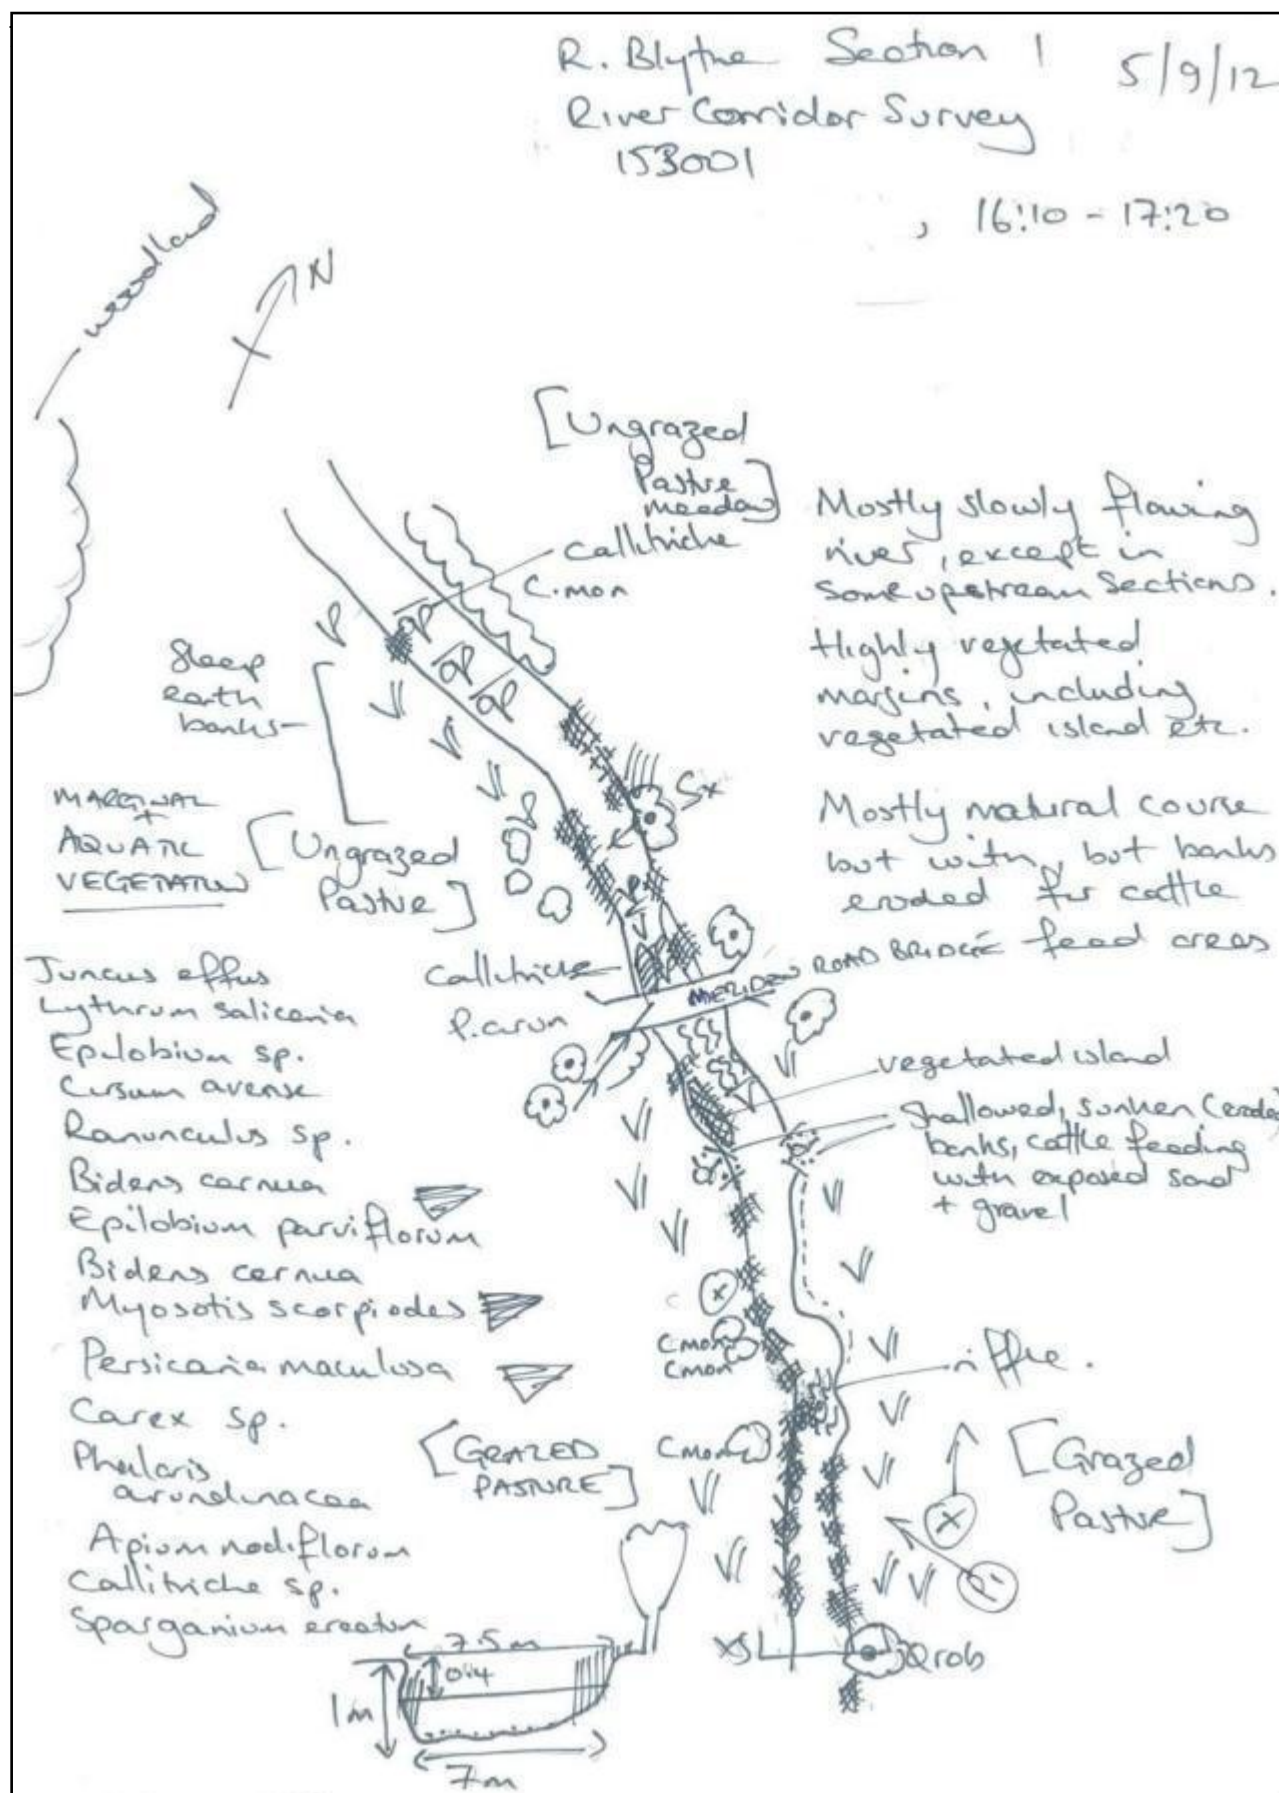 R. Blythe Section 1
5/9/12
River Corridor Survey
153001
, 16:10 - 17:20
woodland
N
[Ungrazed
Pasture
meadow]
Callitriche
C.mon
Mostly slowly flowing
river, except in
some upstream sections.
Highly vegetated
margins, including
vegetated island etc.
Steep
earth
banks
Sx
Mostly natural course
but with, but banks
eroded for cattle
feed areas
MARGINAL
+
AQUATIC
VEGETATION
[Ungrazed
Pasture]
Callitriche
P.arun
MERIDEN ROAD BRIDGE
Juncus effus
Lythrum salicaria
Epilobium sp.
Cirsum avense
Ranunculus sp.
Bidens cernua
Epilobium parviflorum
Bidens cernua
Myosotis scorpiodes
Persicaria maculosa
Carex sp.
Phalaris
arundinacea
Apium nodiflorum
Callitriche sp.
Sparganium erectum
vegetated island
Shallowed, sunken (eroded
banks, cattle feeding
with exposed sand
+ gravel
X
Cmon
Cmon
riffle.
[GRAZED
PASTURE]
Cmon
[Grazed
Pasture]
X
P1
XS
Qrob
7.5m
0.4
1m
7m